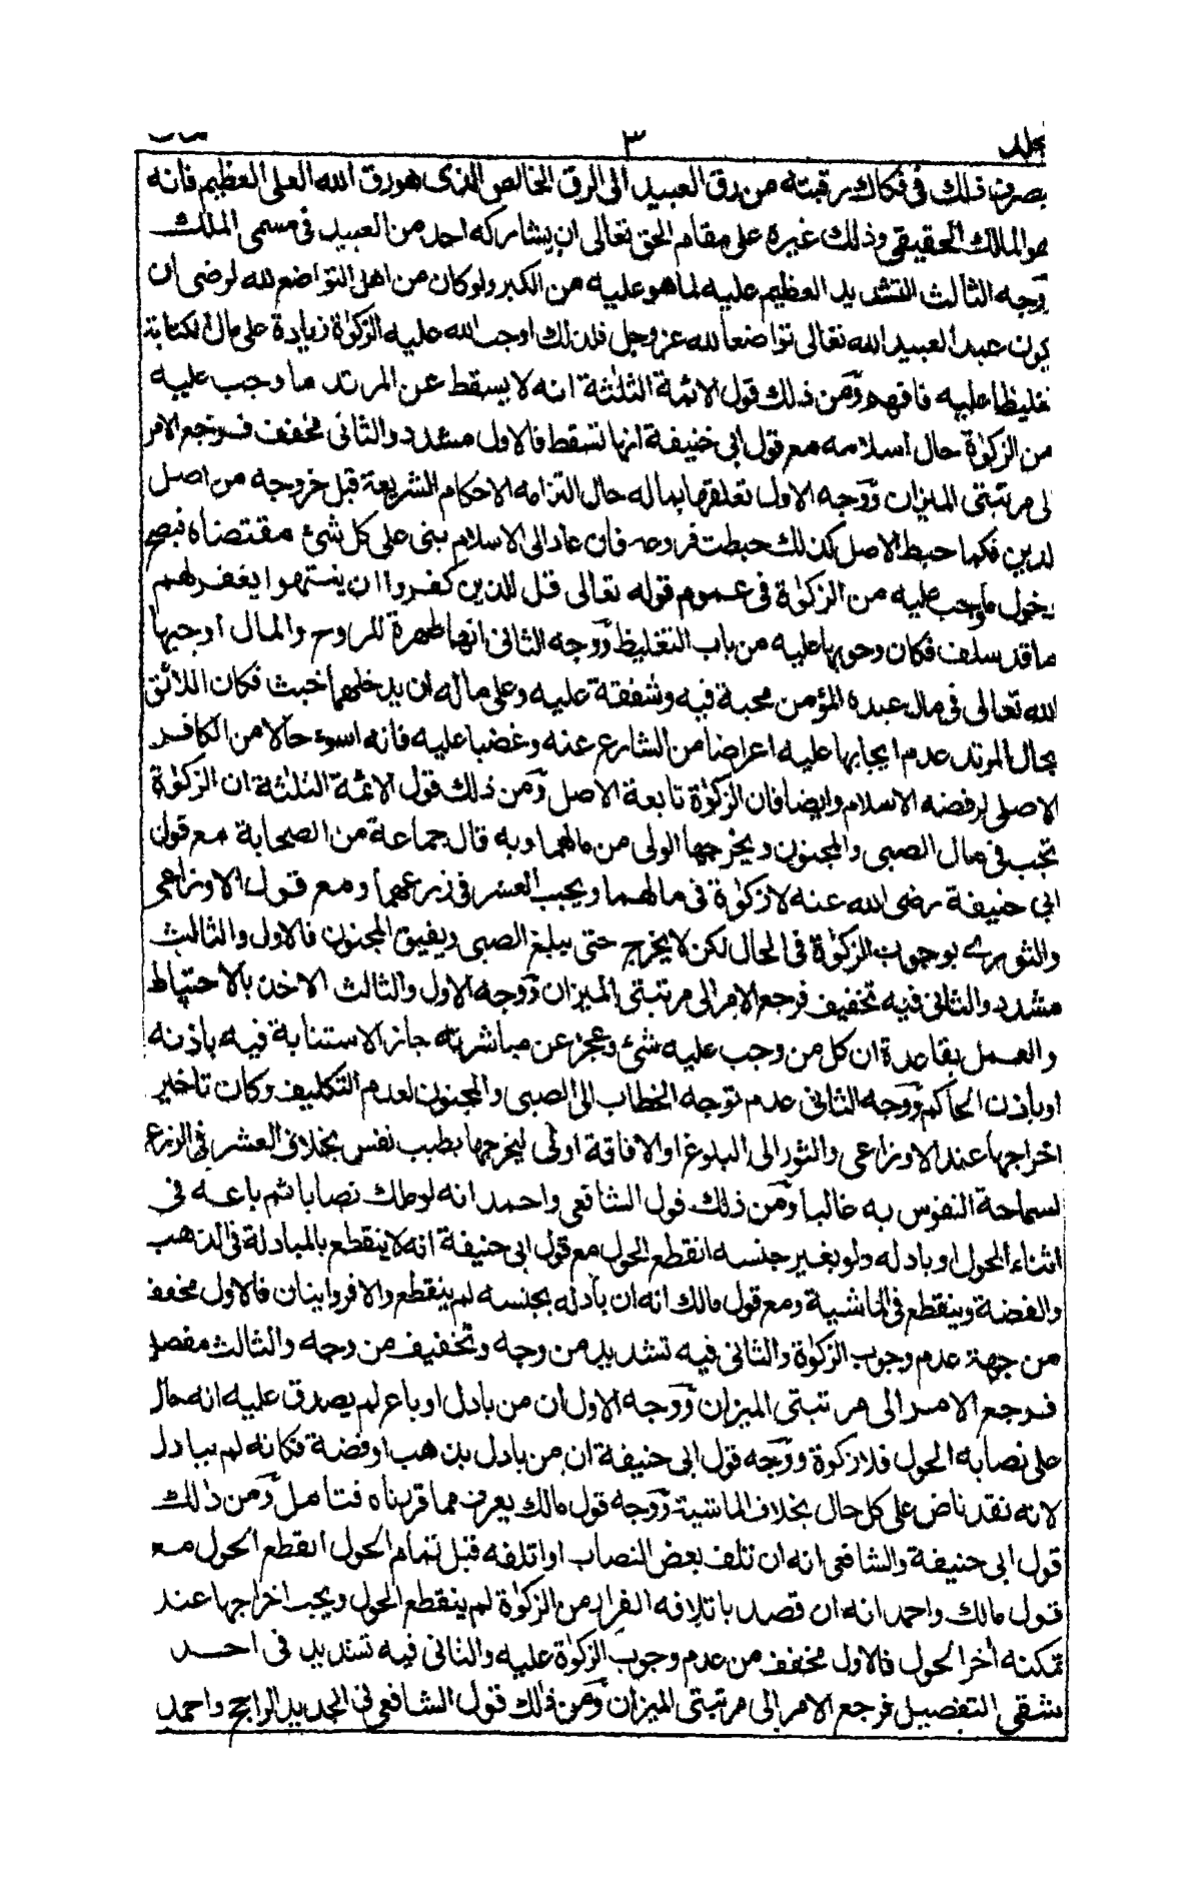 جلد ٣
يصرف ذلك في فكاك رقبته من رق العبيد الى الرق الخالص الذى هو رق الله العلى العظيم فانه
هو المالك الحقيقي وذلك غيرة على مقام الحق تعالى ان يشاركه احد من العبيد في مسمى الملك
ووجه الثالث التشديد العظيم عليه لما هو عليه من الكبر ولو كان من اهل التواضع لله لرضى ان
يكون عبدا لعبيد الله تعالى تواضعا لله عز وجل فلذلك اوجب الله عليه الزكوٰة زيادة على مال الكتابة
تغليظا عليه فافهم ومن ذلك قول الائمة الثلٰثة انه لا يسقط عن المرتد ما وجب عليه
من الزكوٰة حال اسلامه مع قول ابى حنيفة انها تسقط فالاول مشدد والثانى مخفف فرجع الامر
لى مرتبتى الميزان ووجه الاول تعلقها بماله حال التزامه لاحكام الشريعة قبل خروجه من اصل
لدين فكما حبط الاصل كذلك حبطت فروعه فان عاد الى الاسلام بنى على كل شئ مقتضاه فيصح
دخول ما وجب عليه من الزكوٰة فى عموم قوله تعالى قل للذين كفروا ان ينتهوا يغفر لهم
ما قد سلف فكان وجوبها عليه من باب التغليظ ووجه الثانى انها طهرة للروح والمال اوجبها
الله تعالى فى مال عبده المؤمن محبة فيه وشفقة عليه وعلى ماله ان يدخلهما خبث فكان اللائق
بحال المرتد عدم ايجابها عليه اعراضا من الشارع عنه وغضبا عليه فانه اسوء حالا من الكافر
الاصلى لرفضه الاسلام وايضا فان الزكوٰة تابعة الاصل ومن ذلك قول الائمة الثلٰثة ان الزكوٰة
تجب فى مال الصبى والمجنون ويخرجها الولى من مالهما وبه قال جماعة من الصحابة مع قول
ابى حنيفة رضى الله عنه لا زكوٰة فى مالهما ويجب العشر فى زرعهما ومع قول الاوزاعى
والثورى بوجوب الزكوٰة فى الحال لكن لا يخرج حتى يبلغ الصبى ويفيق المجنون فالاول والثالث
مشدد والثانى فيه تخفيف فرجع الامر الى مرتبتى الميزان ووجه الاول والثالث الاخذ بالاحتياط
والعمل بقاعدة ان كل من وجب عليه شئ وعجز عن مباشرته جاز الاستنابة فيه باذنه
او باذن الحاكم ووجه الثانى عدم توجه الخطاب الى الصبى والمجنون لعدم التكليف وكان تاخير
اخراجها عند الاوزاعى والثورى الى البلوغ او الافاقة اولى ليخرجها بطيب نفس بخلاف العشر فى الزرع
لسماحة النفوس به غالبا ومن ذلك قول الشافعى واحمد انه لو ملك نصابا ثم باعه فى
اثناء الحول او بادله ولو بغير جنسه انقطع الحول مع قول ابى حنيفة انه لا ينقطع بالمبادلة فى الذهب
والفضة وينقطع فى الماشية ومع قول مالك انه ان بادله بجنسه لم ينقطع والا فروايتان فالاول مخفف
من جهة عدم وجوب الزكوٰة والثانى فيه تشديد من وجه وتخفيف من وجه والثالث مفصل
فرجع الامر الى مرتبتى الميزان ووجه الاول ان من بادل او باع لم يصدق عليه انه حال
على نصابه الحول فلا زكوة ووجه قول ابى حنيفة ان من بادل بذهب او فضة فكانه لم يبادل
لانه نقد ناض على كل حال بخلاف الماشية ووجه قول مالك يعرف مما قررناه فتامل ومن ذلك
قول ابى حنيفة والشافعى انه ان تلف بعض النصاب او اتلفه قبل تمام الحول انقطع الحول مع
قول مالك واحمد انه ان قصد باتلافه الفرار من الزكوٰة لم ينقطع الحول ويجب اخراجها عند
تمكنه اٰخر الحول فالاول مخفف من عدم وجوب الزكوٰة عليه والثانى فيه تشديد فى احد
شقى التفصيل فرجع الامر الى مرتبتى الميزان ومن ذلك قول الشافعى فى الجديد الراجح واحمد